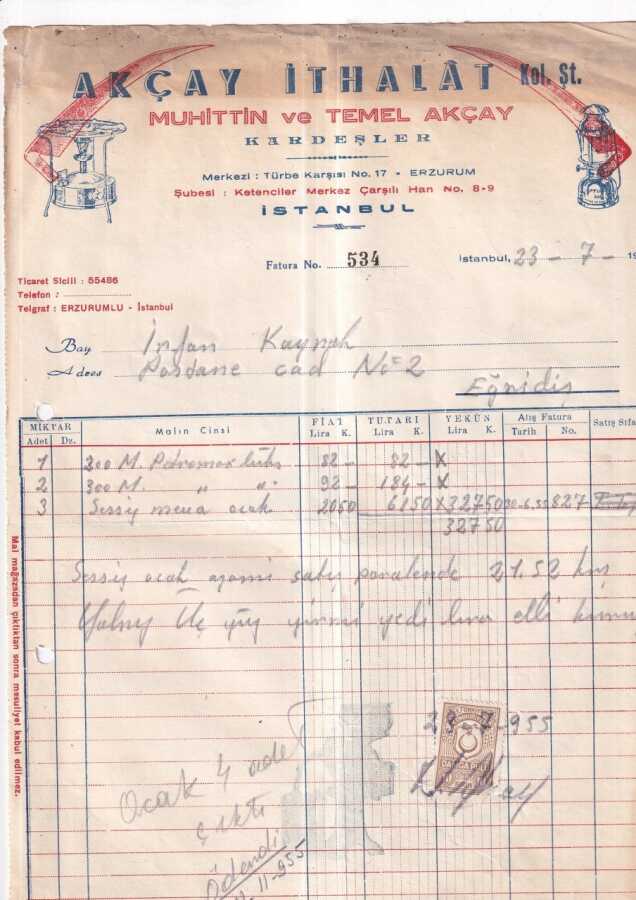 AKÇAY İTHALÂT Kol. Şt.
MUHİTTİN ve TEMEL AKÇAY
KARDEŞLER
Merkezi : Türbe Karşısı No. 17 - ERZURUM
Şubesi : Ketenciler Merkez Çarşılı Han No. 8-9
İSTANBUL
Fatura No. 534
İstanbul, 23 - 7 - 19
Ticaret Sicili : 55486
Telefon :
Telgraf : ERZURUMLU - İstanbul
Bay İrfan Kaynak
Adres Postane cad No 2
Eğridir
MİKTAR Malın Cinsi FİAT TUTARI YEKÛN Alış Fatura Satış Sıfa
Adet Dz. Lira K. Lira K. Lira K. Tarih No.
1 300 M. Petromax lüks 82 - 82 - X
2 300 M. " " 92 - 184 - X
3 Sessiz mena ocak 2050 6150 X 327 50 30-6.55 827
327 50
Sessiz ocak azami satış 21.52 krş
Yalnız Üç yüz yirmi yedi lira elli
Mal mağazadan çıktıktan sonra mesuliyet kabul edilmez.
23 7 955
Ocak 4 adet
çıktı
Ödendi
11-955